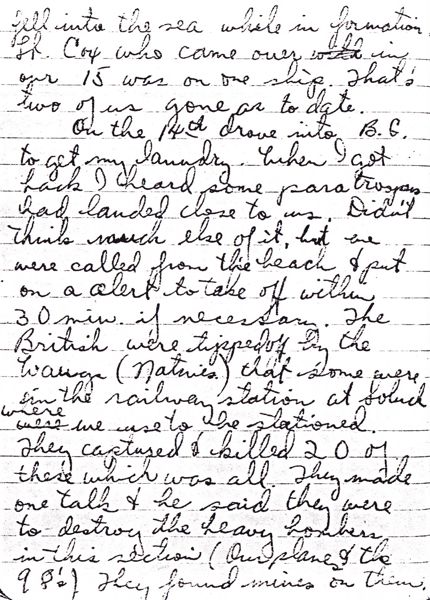 fell into the sea while in formation.
Lt. Cox who came over with in
our 15 was on one ship. That's
two of us gone as to date.
On the 14th drove into B.G.
to get my laundry. When I got
back I heard some paratroops
had landed close to us. Didn't
think much else of it, but we
were called from the beach & put
on a alert to take off within
30 min. if necessary. The
British were tipped off by the
(Natives) that some were
in the railway station at Soluch
where
were we use to be stationed.
They captured & killed 20 of
these which was all. They made
one talk & he said they were
to destroy the heavy bombers
in this section (Our planes & the
98's) They found mines on them.